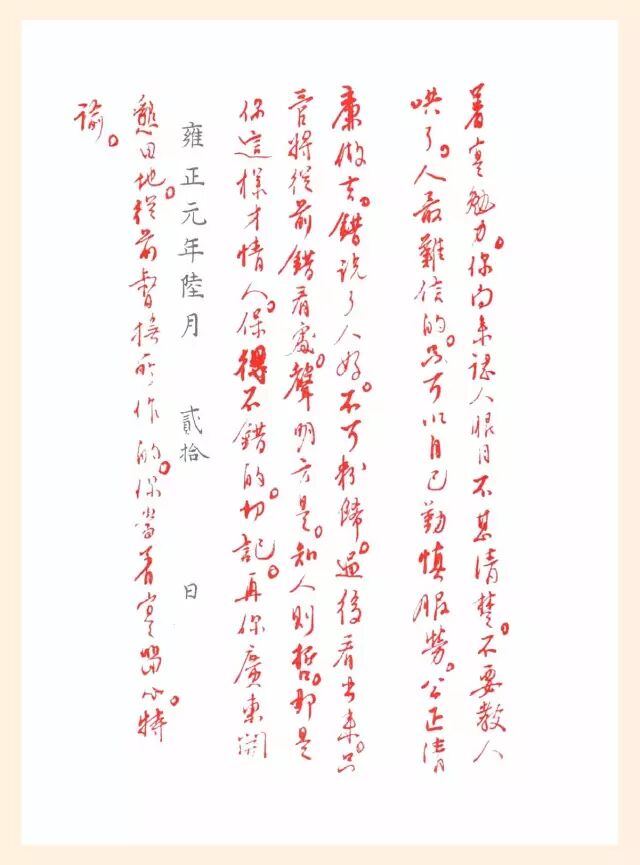 著寔勉力。你向來認人眼目不甚清楚。不要教人
哄了。人最難信的。只可以自己勤慎服勞。公正清
廉做去。錯說了人好。不可粉餙。過後看出来。只
管將從前錯看處。聲明方是。知人則哲。那是
你這樣才情人。保得不錯的。切記。再你廣東開
雍正元年陸月 貳拾 日
懇田地。從前督撫所作的。你當着寔留心。特
諭。